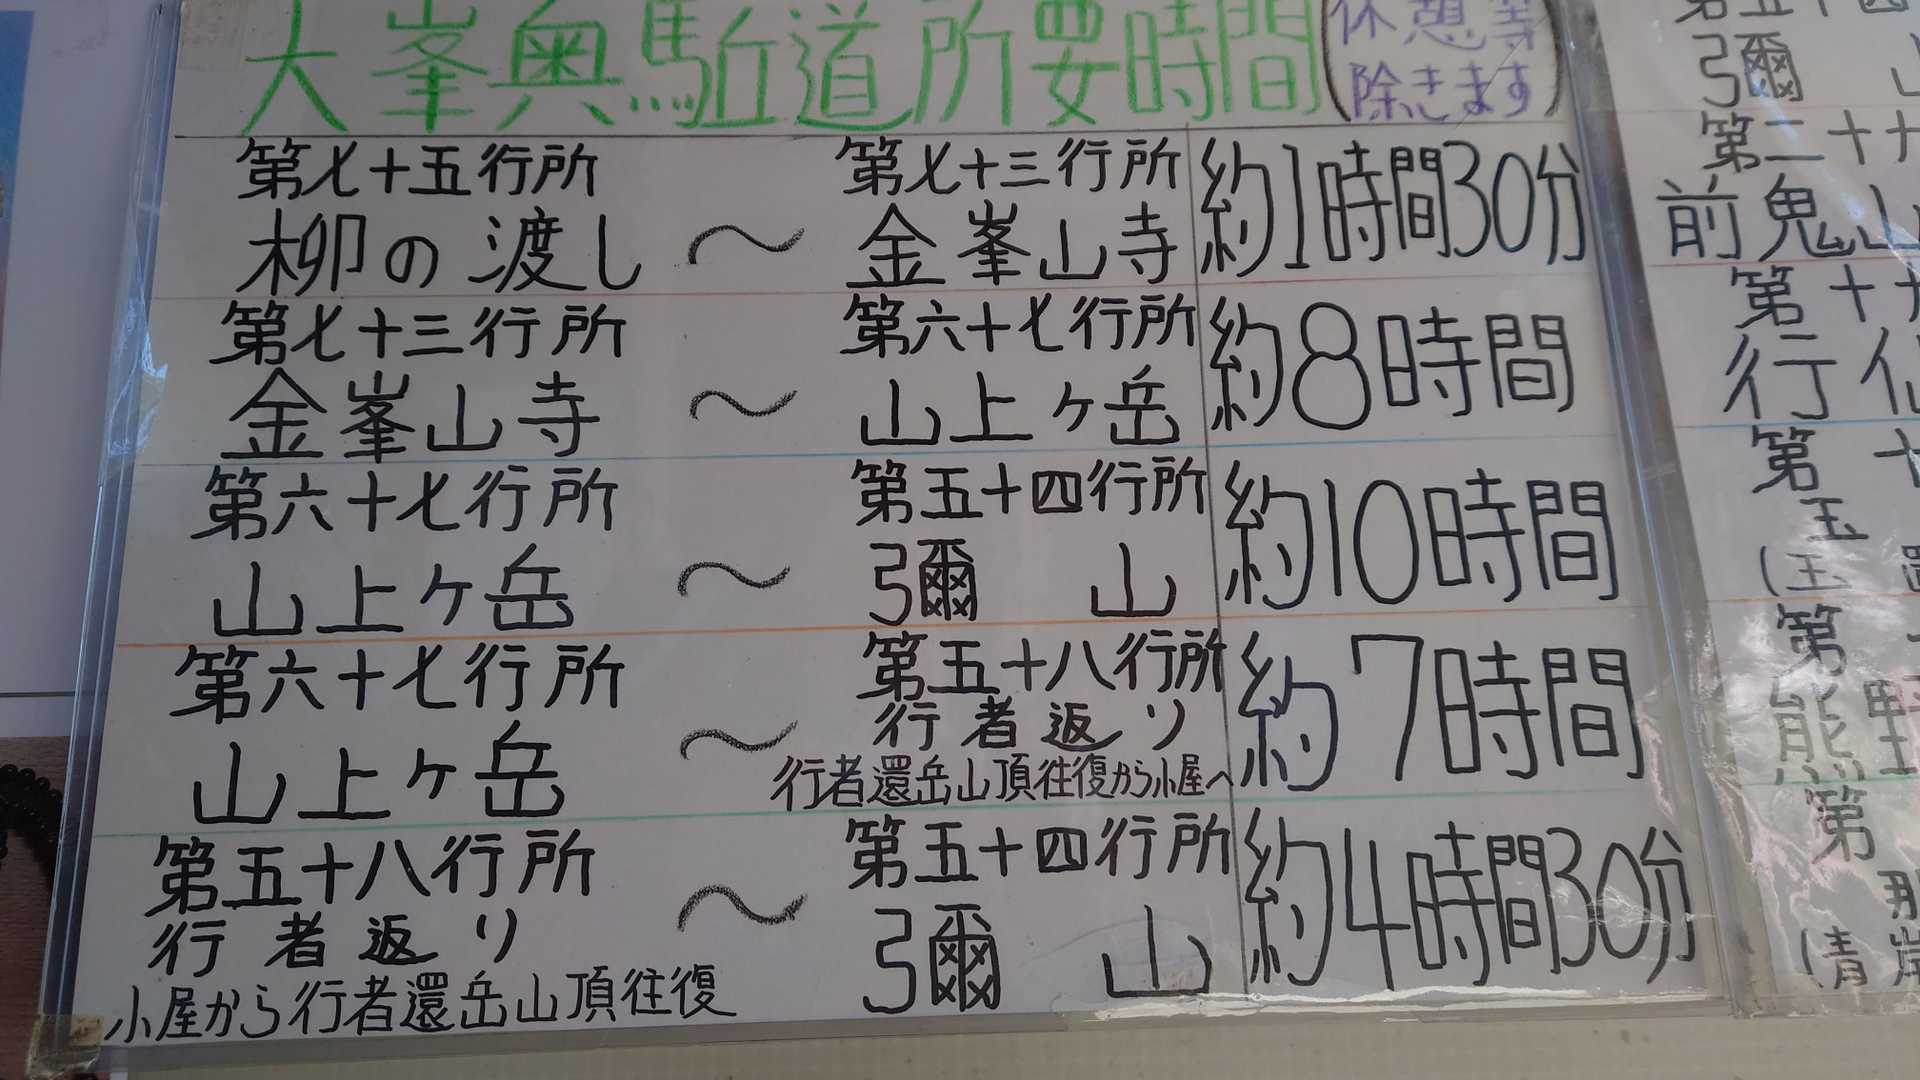 大峯奥駈道所要時間(休憩等
除きます)
第七十五行所 第七十三行所
柳の渡し ～ 金峯山寺 約1時間30分
第七十三行所 第六十七行所
金峯山寺 ～ 山上ヶ岳 約8時間
第六十七行所 第五十四行所
山上ヶ岳 ～ 彌山 約10時間
第六十七行所 第五十八行所
山上ヶ岳 ～ 行者返り 約7時間
行者還岳山頂往復から小屋へ
第五十八行所 第五十四行所
行者返り ～ 彌山 約4時間30分
小屋から行者還岳山頂往復
彌山
第二十九
前鬼山
第十九
行仙
第十
玉
第
能野
第
那
(青岸